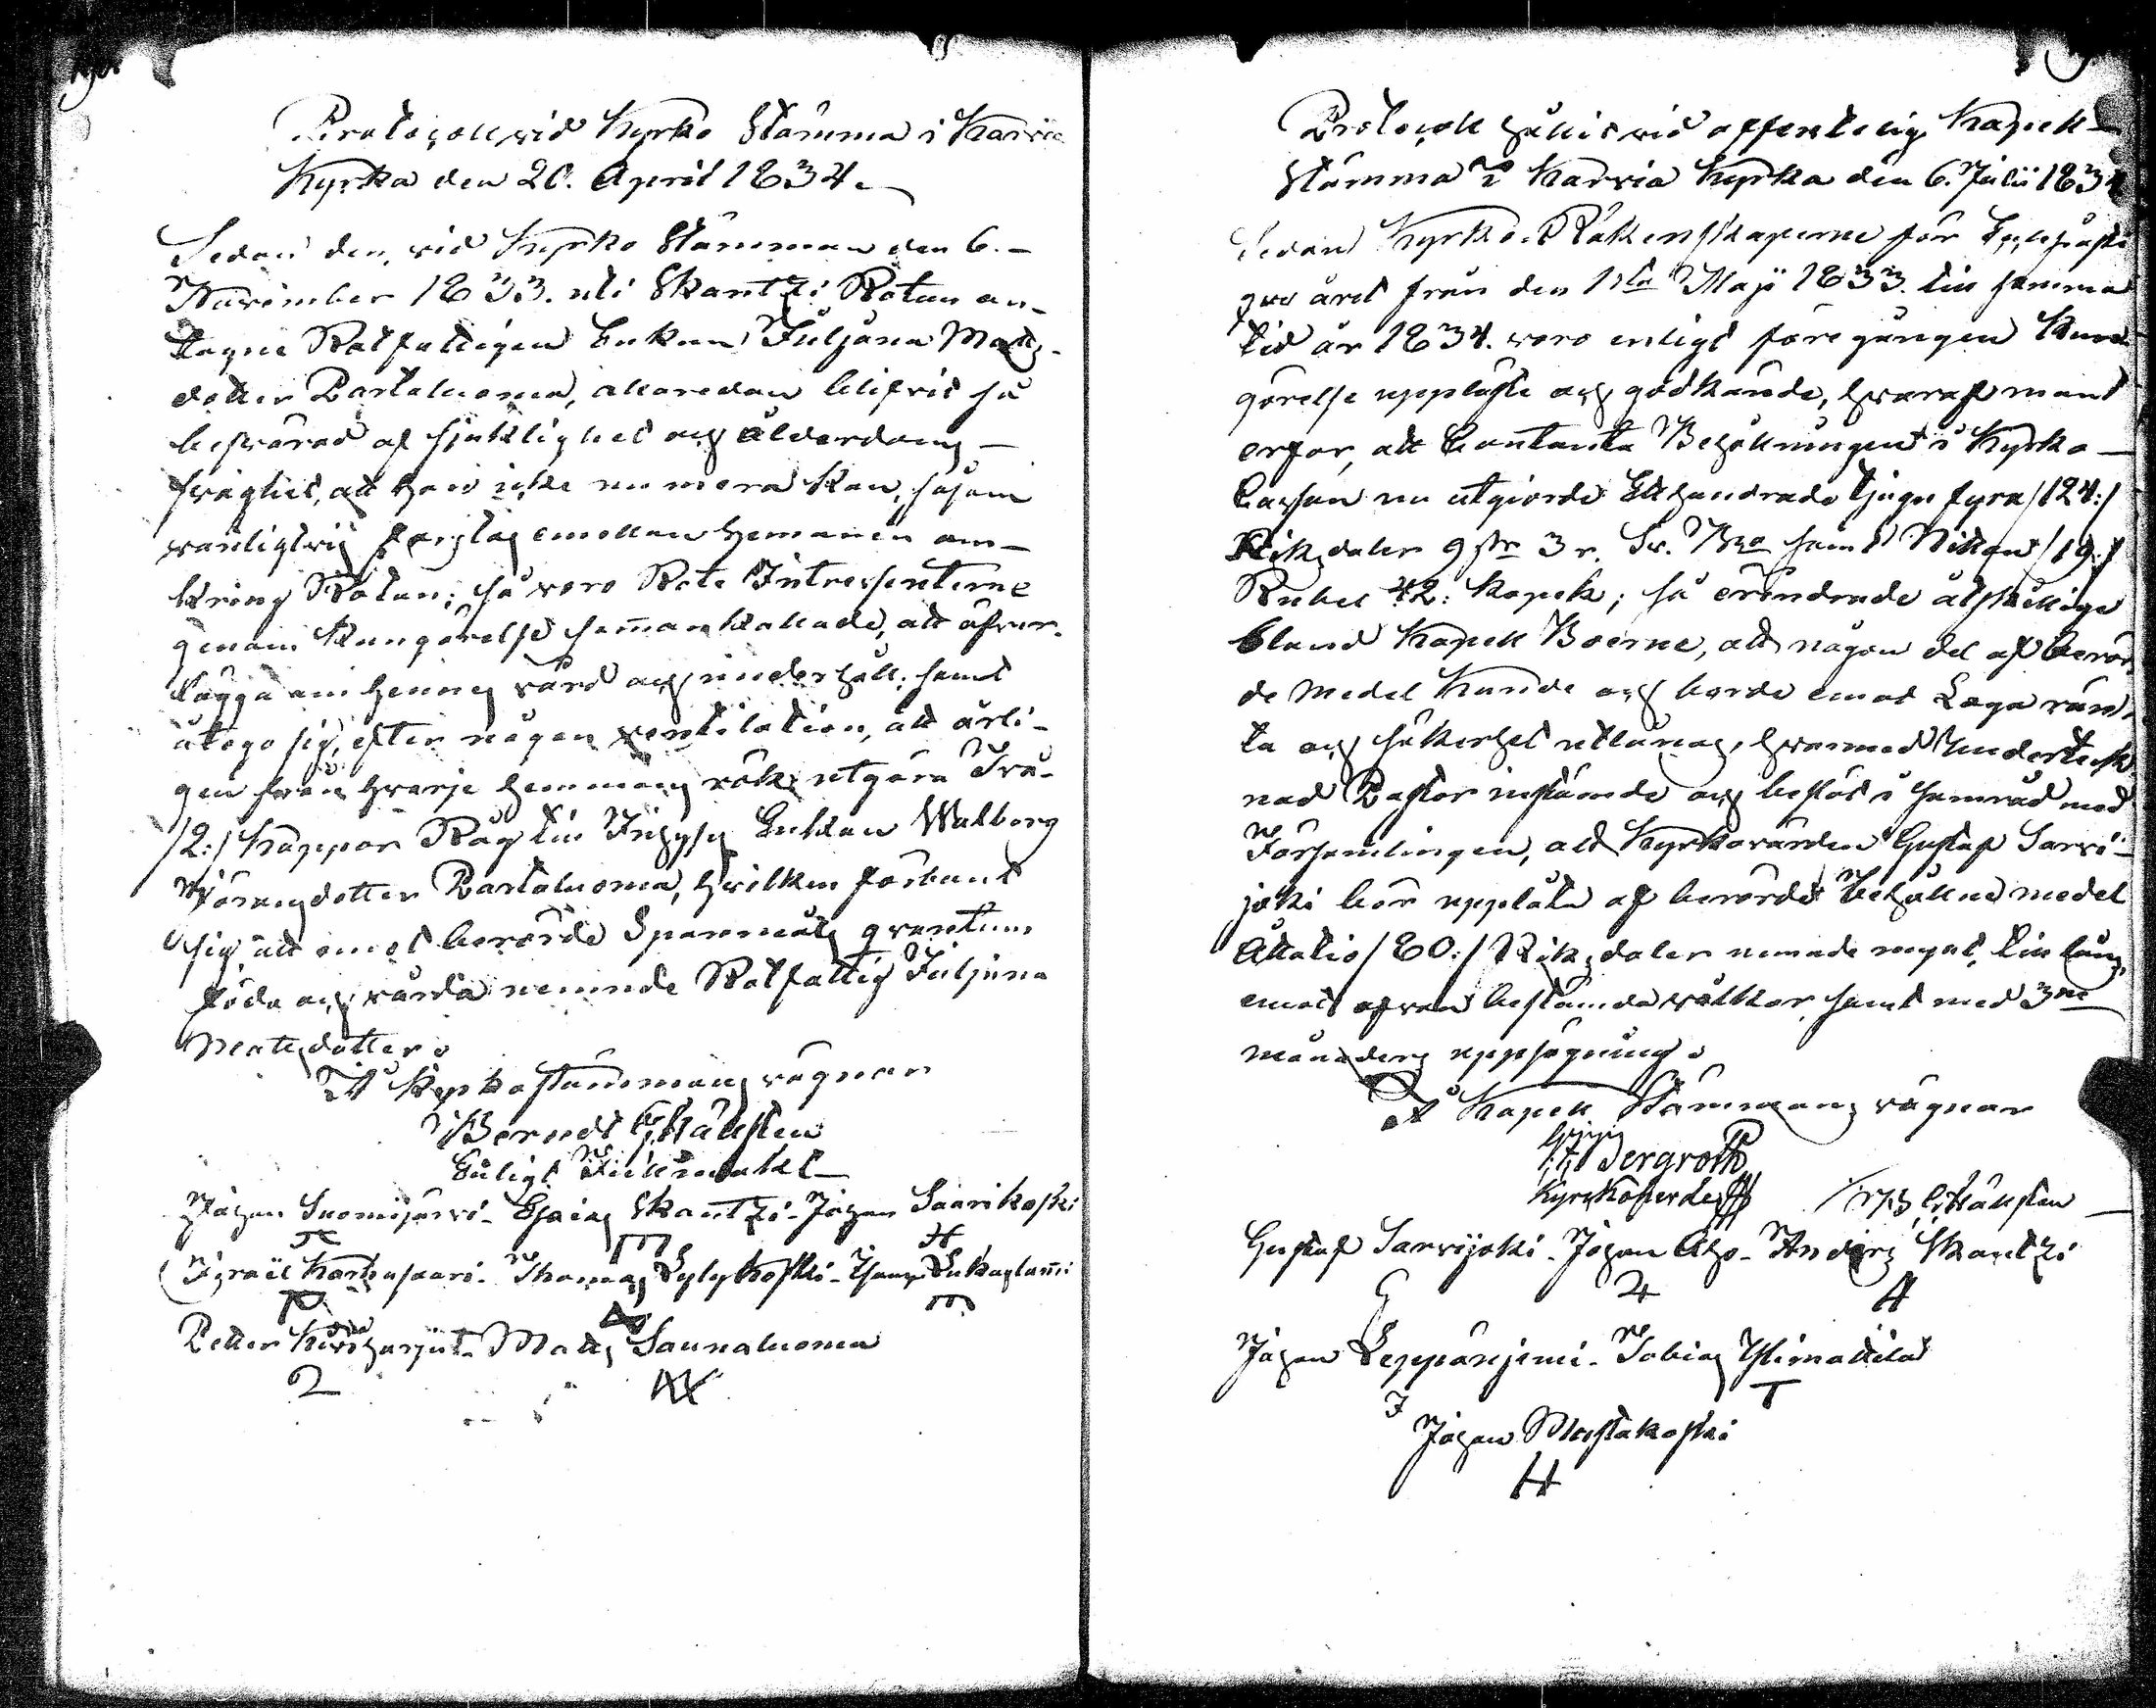 Protocoll vid Kyrko Stämma i Karvia
Kyrka den 20. April 1834.
Sedan den, vid Kyrko Stämman den 6.
November 1833. uti Skantzi Rotan an-
tagne Rotfattigen Enkan Juljana Matts-
dotter Rantaluoma, allaredan blifvit så
besvärad af sjuklighet och ålderdoms-
svaghet, att hon icke nu mera kan, såsom
vanligtvis forslas emellan hemmanen om-
kring Rotan; så voro Rote Intressenterne
genom Kungörelse sammankallade, att öfver-
lägga om hennes vård och underhåll; samt
åtogo sig, efter någon ventilation, att årli-
gen från hvarje hemmans rök utgöra Två
/2:/ Kappor Råg till Inhyses Enkan Walborg
Göransdotter Rantaluoma, hvilken förbant
sig, att emot berörde Spannmåls quantum
föda och vårda nemnde Rotfattig Juljana
Mattsdotter.
På Kyrkostämmans vägnar
Bernd G. Hällsten
Enligt Fullmakt
Johan Suomijärvi - Esaias Skantzi - Johan Saarikoski
Israël Karhusaari - Thomas Lylykoski - Lukaslami
Petter Kiviharju - Matts Saunaluoma
2
Protocoll hållit vid offentelig Kapell-
Stämma i Karvia Kyrka den 6. Julii 1834
Sedan Kyrko-Räkenskaperne för Ecclesiasti-
que året från den 1sta Maji 1833. till samma
tid år 1834. voro enligt föregången Kun-
görelse uppläste och godkände, hvaraf man
erfor, att Contanta Behållningen i Kyrko-
Cassan nu utgiorde Ett hundrade tjugu fyra /124:/
Riksdaler 9 sk 3 r. Sv. Bco samt Nitton /19:/
Rubel 42: Kopek; så erindrade åtskillige
bland Kapell Boerne, att någon del af berör-
de medel kunde och borde emot Laga rän-
ta och säkerhet utlånas, hvarmed Underteck-
nad Pastor instämde och beslöt i samråd med
Församlingen, att Kyrkovärden Gustaf Sarvi-
joki bör upplåta af berörde behållne medel
Åttatio /80:/ Riksdaler nemnde mynt, till låns,
emot ofvan bestämda vilkor, samt med 3ne
månaders uppsägning.
På Kapell Stämmans vägnar
Bergroth
Kyrkoherde
G. Hällsten
Gustaf Sarvijoki - Johan Aho - Anders Skantzi
G 4 A
Johan Leppänjemi - Tobias Ylimattila
J T
Johan Mustakoski
H